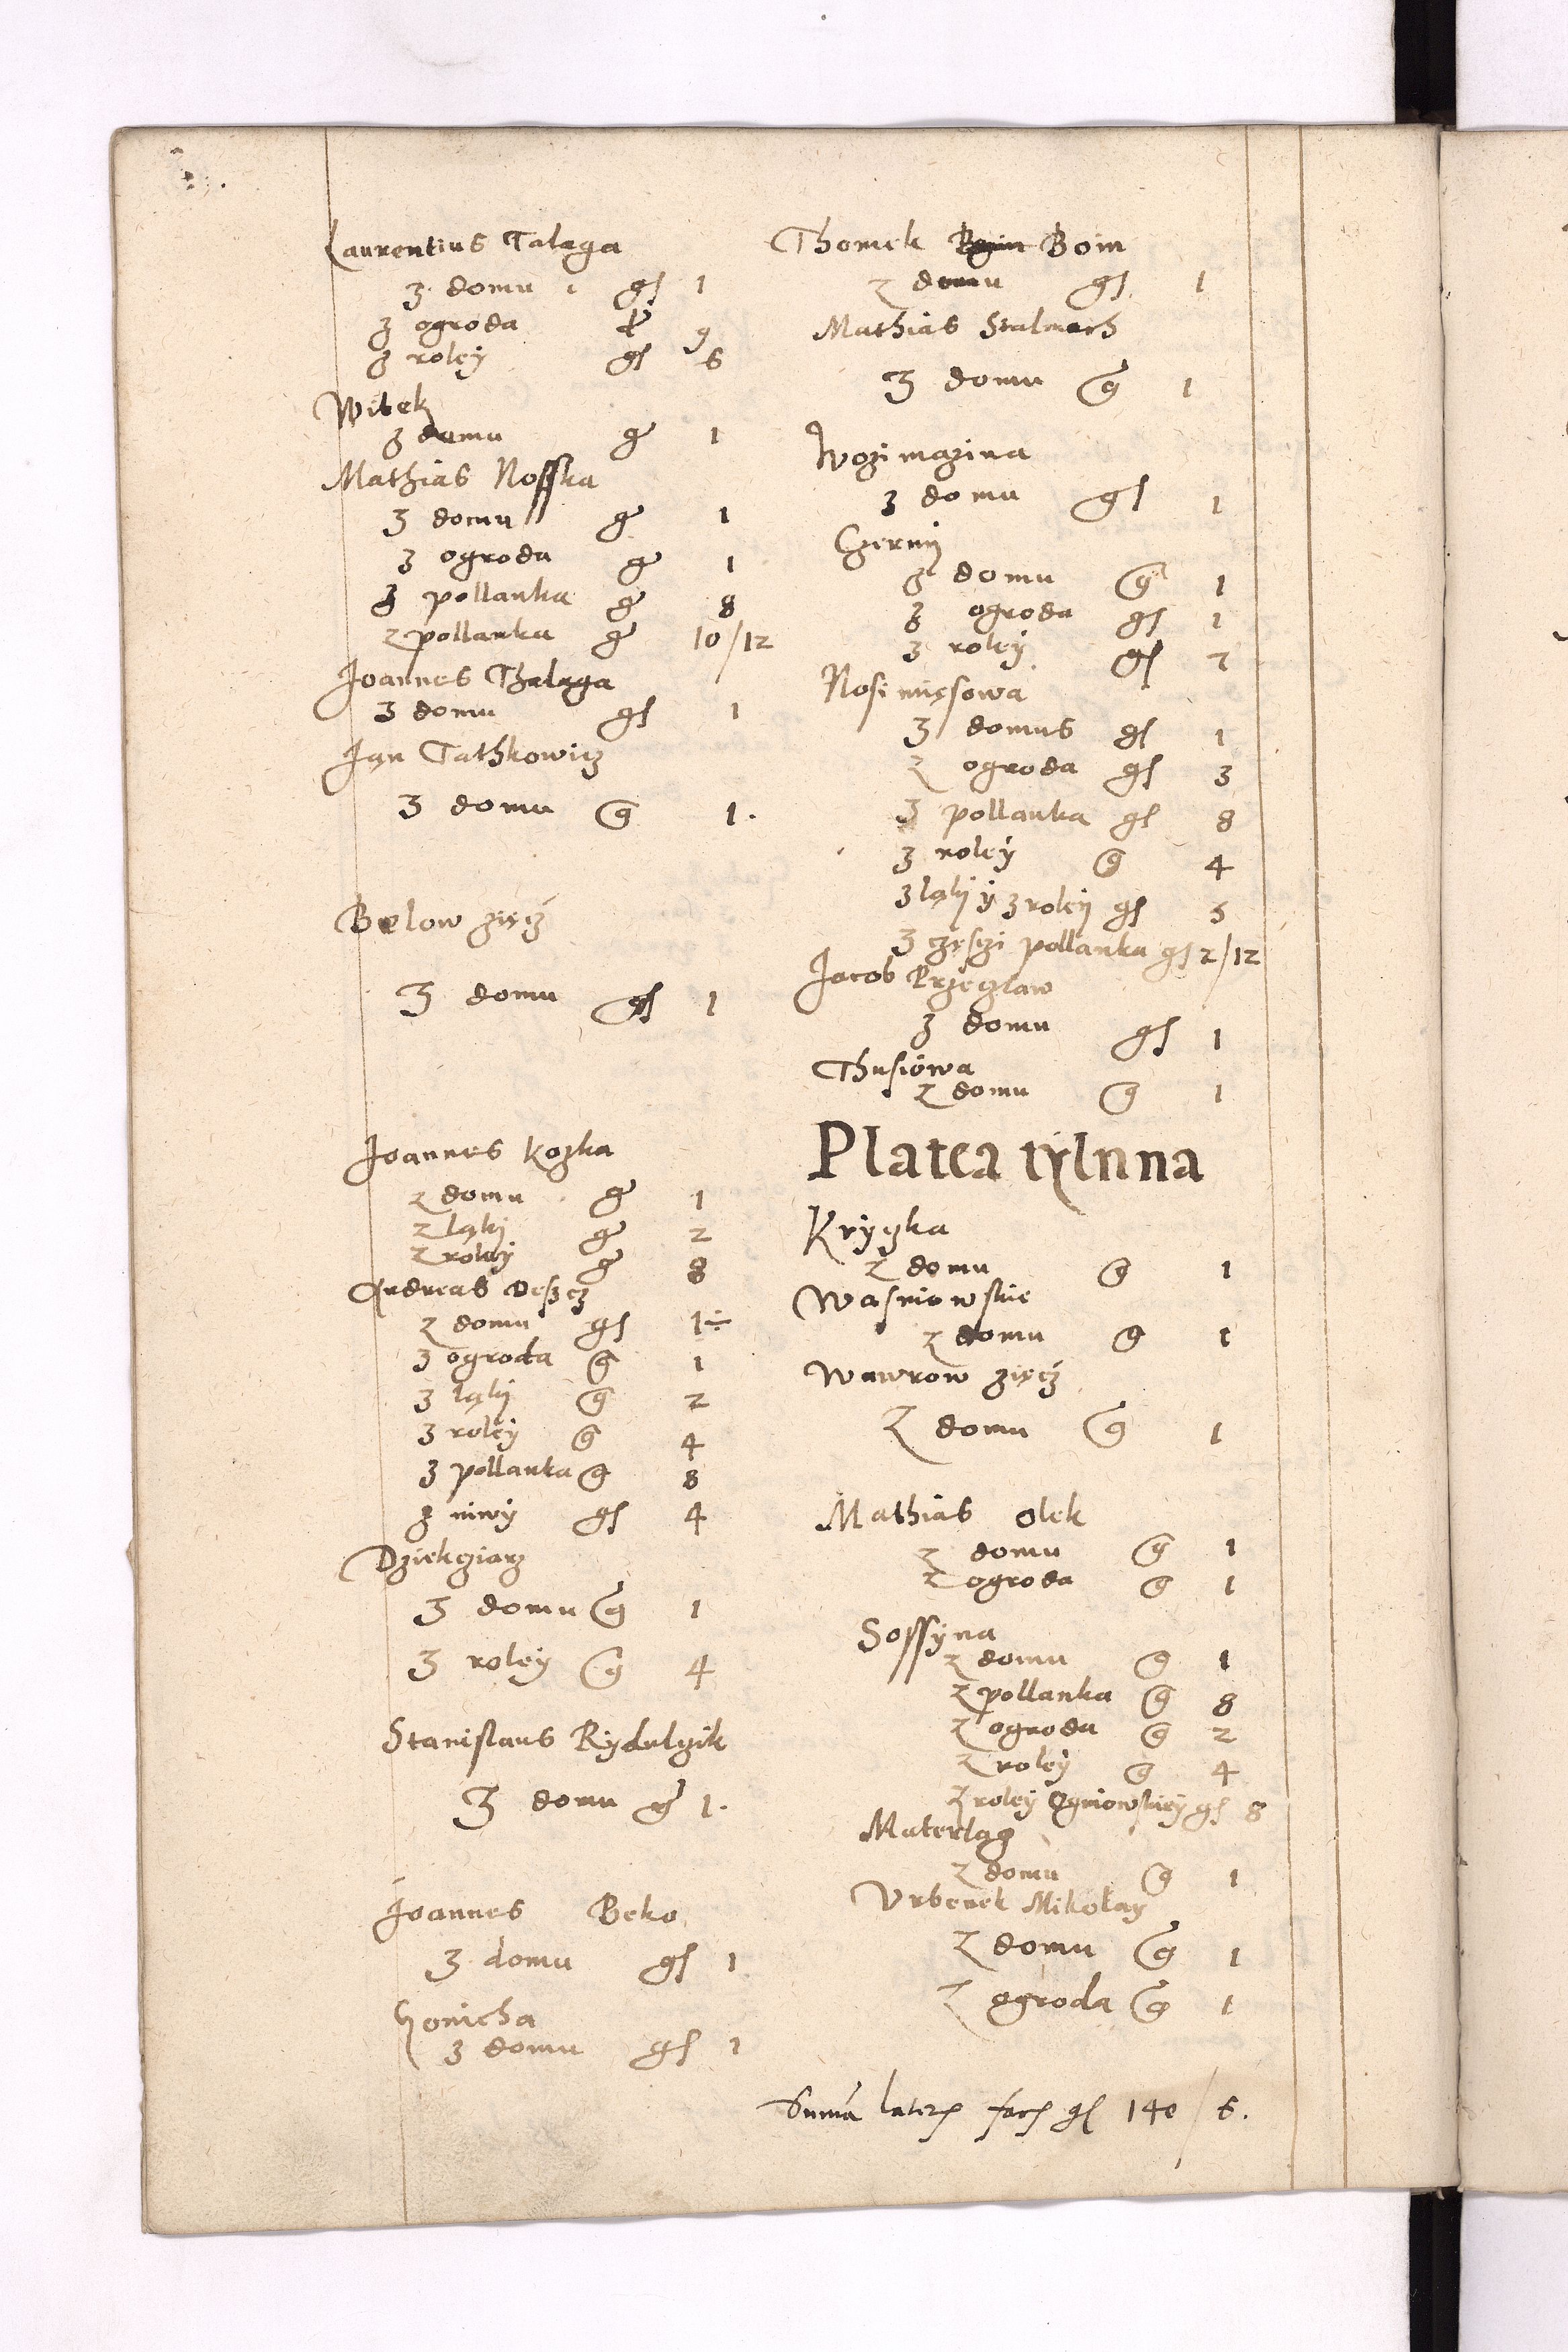 Laurentius Talaga
z domu gs 1
z ogroda 9
z roley gs 6
Witek
z domu g 1
Mathias Nosska
z domu g 1
z ogroda g 1
z pollanka g 8
z pollanka g 10/12
Joannes Thalaga
z domu gs 1
Jan Tathkowicz
z domu g 1.
Below zięcz
z domu gs 1
Joannes Kozka
z domu g 1
z ląki g 2
z roley g 8
Andreas Deszcz
z domu gs 1÷
z ogroda g 1
z ląki g 2
z roley g 4
z pollanka g 8
z niwy gs 4
Dziekziarz
z domu g 1
z roley g 4
Stanislaus Rydulzik
z domu g 1.
Joannes Beko
z domu gs 1
Honicha
z domu gs 1
Thomek Boin
z domu gs 1
Mathias Stalmach
z domu g 1
Wozimazina
z domu gs 1
Czerny
z domu g 1
z ogroda gs 1
z roley gs 2
Nosimięsowa
z domus gs 1
z ogroda gs 3
z pollanka gs 8
z roley g 4
z ląki y z roley gs 5
z częsczi pollanka gs 2/12
Jacob Przeczlaw
z domu gs 1
Thusiowa
z domu g 1
Platea tylnna
Kryczka
z domu g 1
Wasniowskie
z domu g 1
Wawrow zięcz
z domu g 1
Mathias Olek
z domu g 1
z ogroda g 1
Sossyna
z domu g 1
z pollanka g 8
z ogroda g 2
z roley g 4
z roley Ogniowskiey gs 8
Materląg
z domu g 1
Vrbenek Mikolay
z domu g 1
z ogroda g 1
Suma lateris facit gs 140/6.